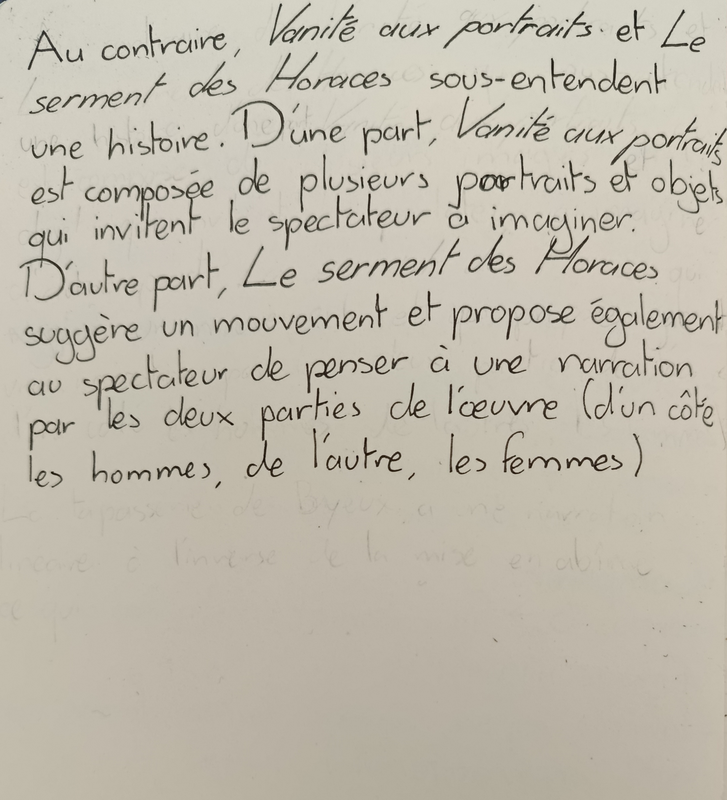 Au contraire, Vanité aux portraits. et Le
serment des Horaces sous-entendent
une histoire. D'une part, Vanité aux portraits
est composée de plusieurs portraits et objets
qui invitent le spectateur à imaginer.
D'autre part, Le serment des Horaces
suggère un mouvement et propose également
au spectateur de penser à une narration
par les deux parties de l'œuvre (d'un côté
les hommes, de l'autre, les femmes)